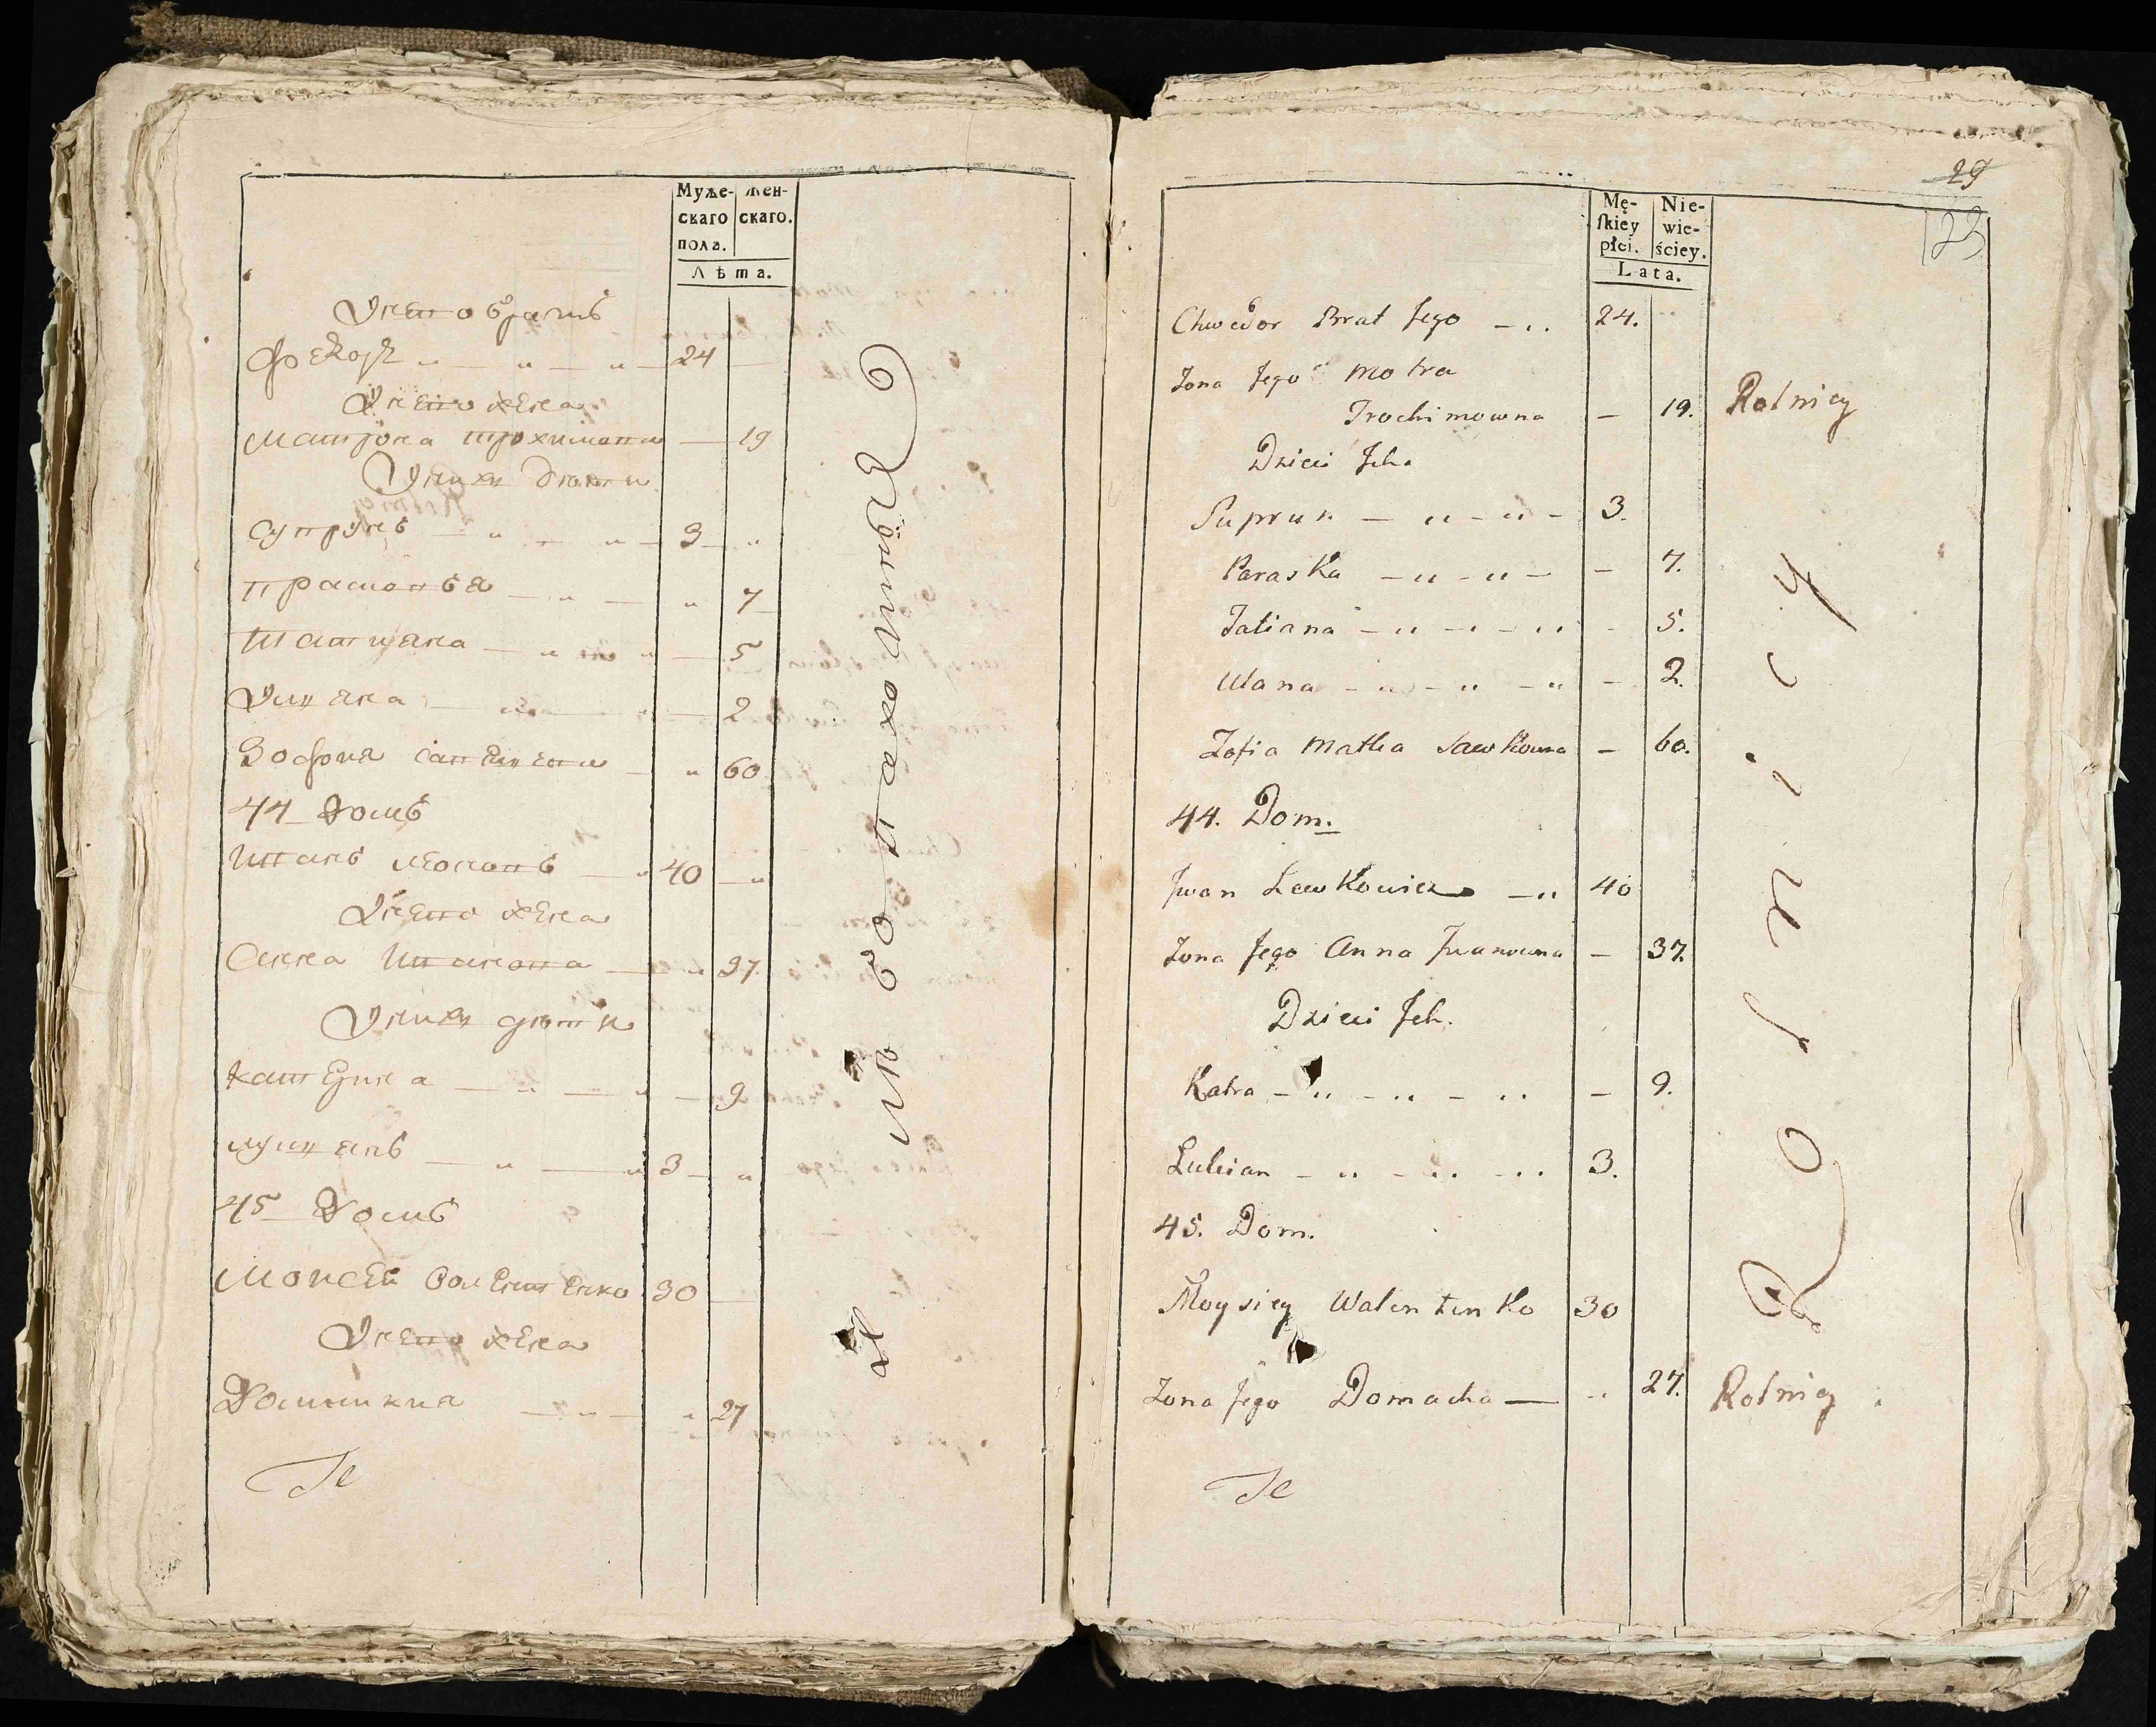 Муже- Жен-
скаго скаго.
пола.
Лѣта.
Унего братъ
Федоръ 24
Унего жена
Матрона Трохимова 19
Унихъ дѣти
Супрунъ 3
Прасковья 7
Татьяна 5
Ульяна 2
Зофия 60
44 Домъ
Иванъ 40
Унего жена
Анна Иванова 37
Унихъ дѣти
Катерина 9
Лукьянъ 3
45 Домъ
Моисей Валентенко 30
Унего жена
27
Те
29
23
Mę- Nie-
ſkiey wie-
płci. ściey.
Lata.
Chwedor Brat Jego 24.
Żona Jego Motra
Trochimowna — 19. Rolnicy
Dzieci Ich.
Suprun 3.
Paraska — 7.
Tatiana - 5.
Ulana — 2.
Zofia Matka Sawkowna — 60.
44. Dom.
Iwan Lewkowicz 40
Żona Jego Anna Iwanowna — 37.
Dzieci Ich.
Katra — 9.
Lukian 3.
45. Dom.
Moysiey Walentenko 30
Żona Jego Domacha — 27. Rolnicy
Rolnicy
Te